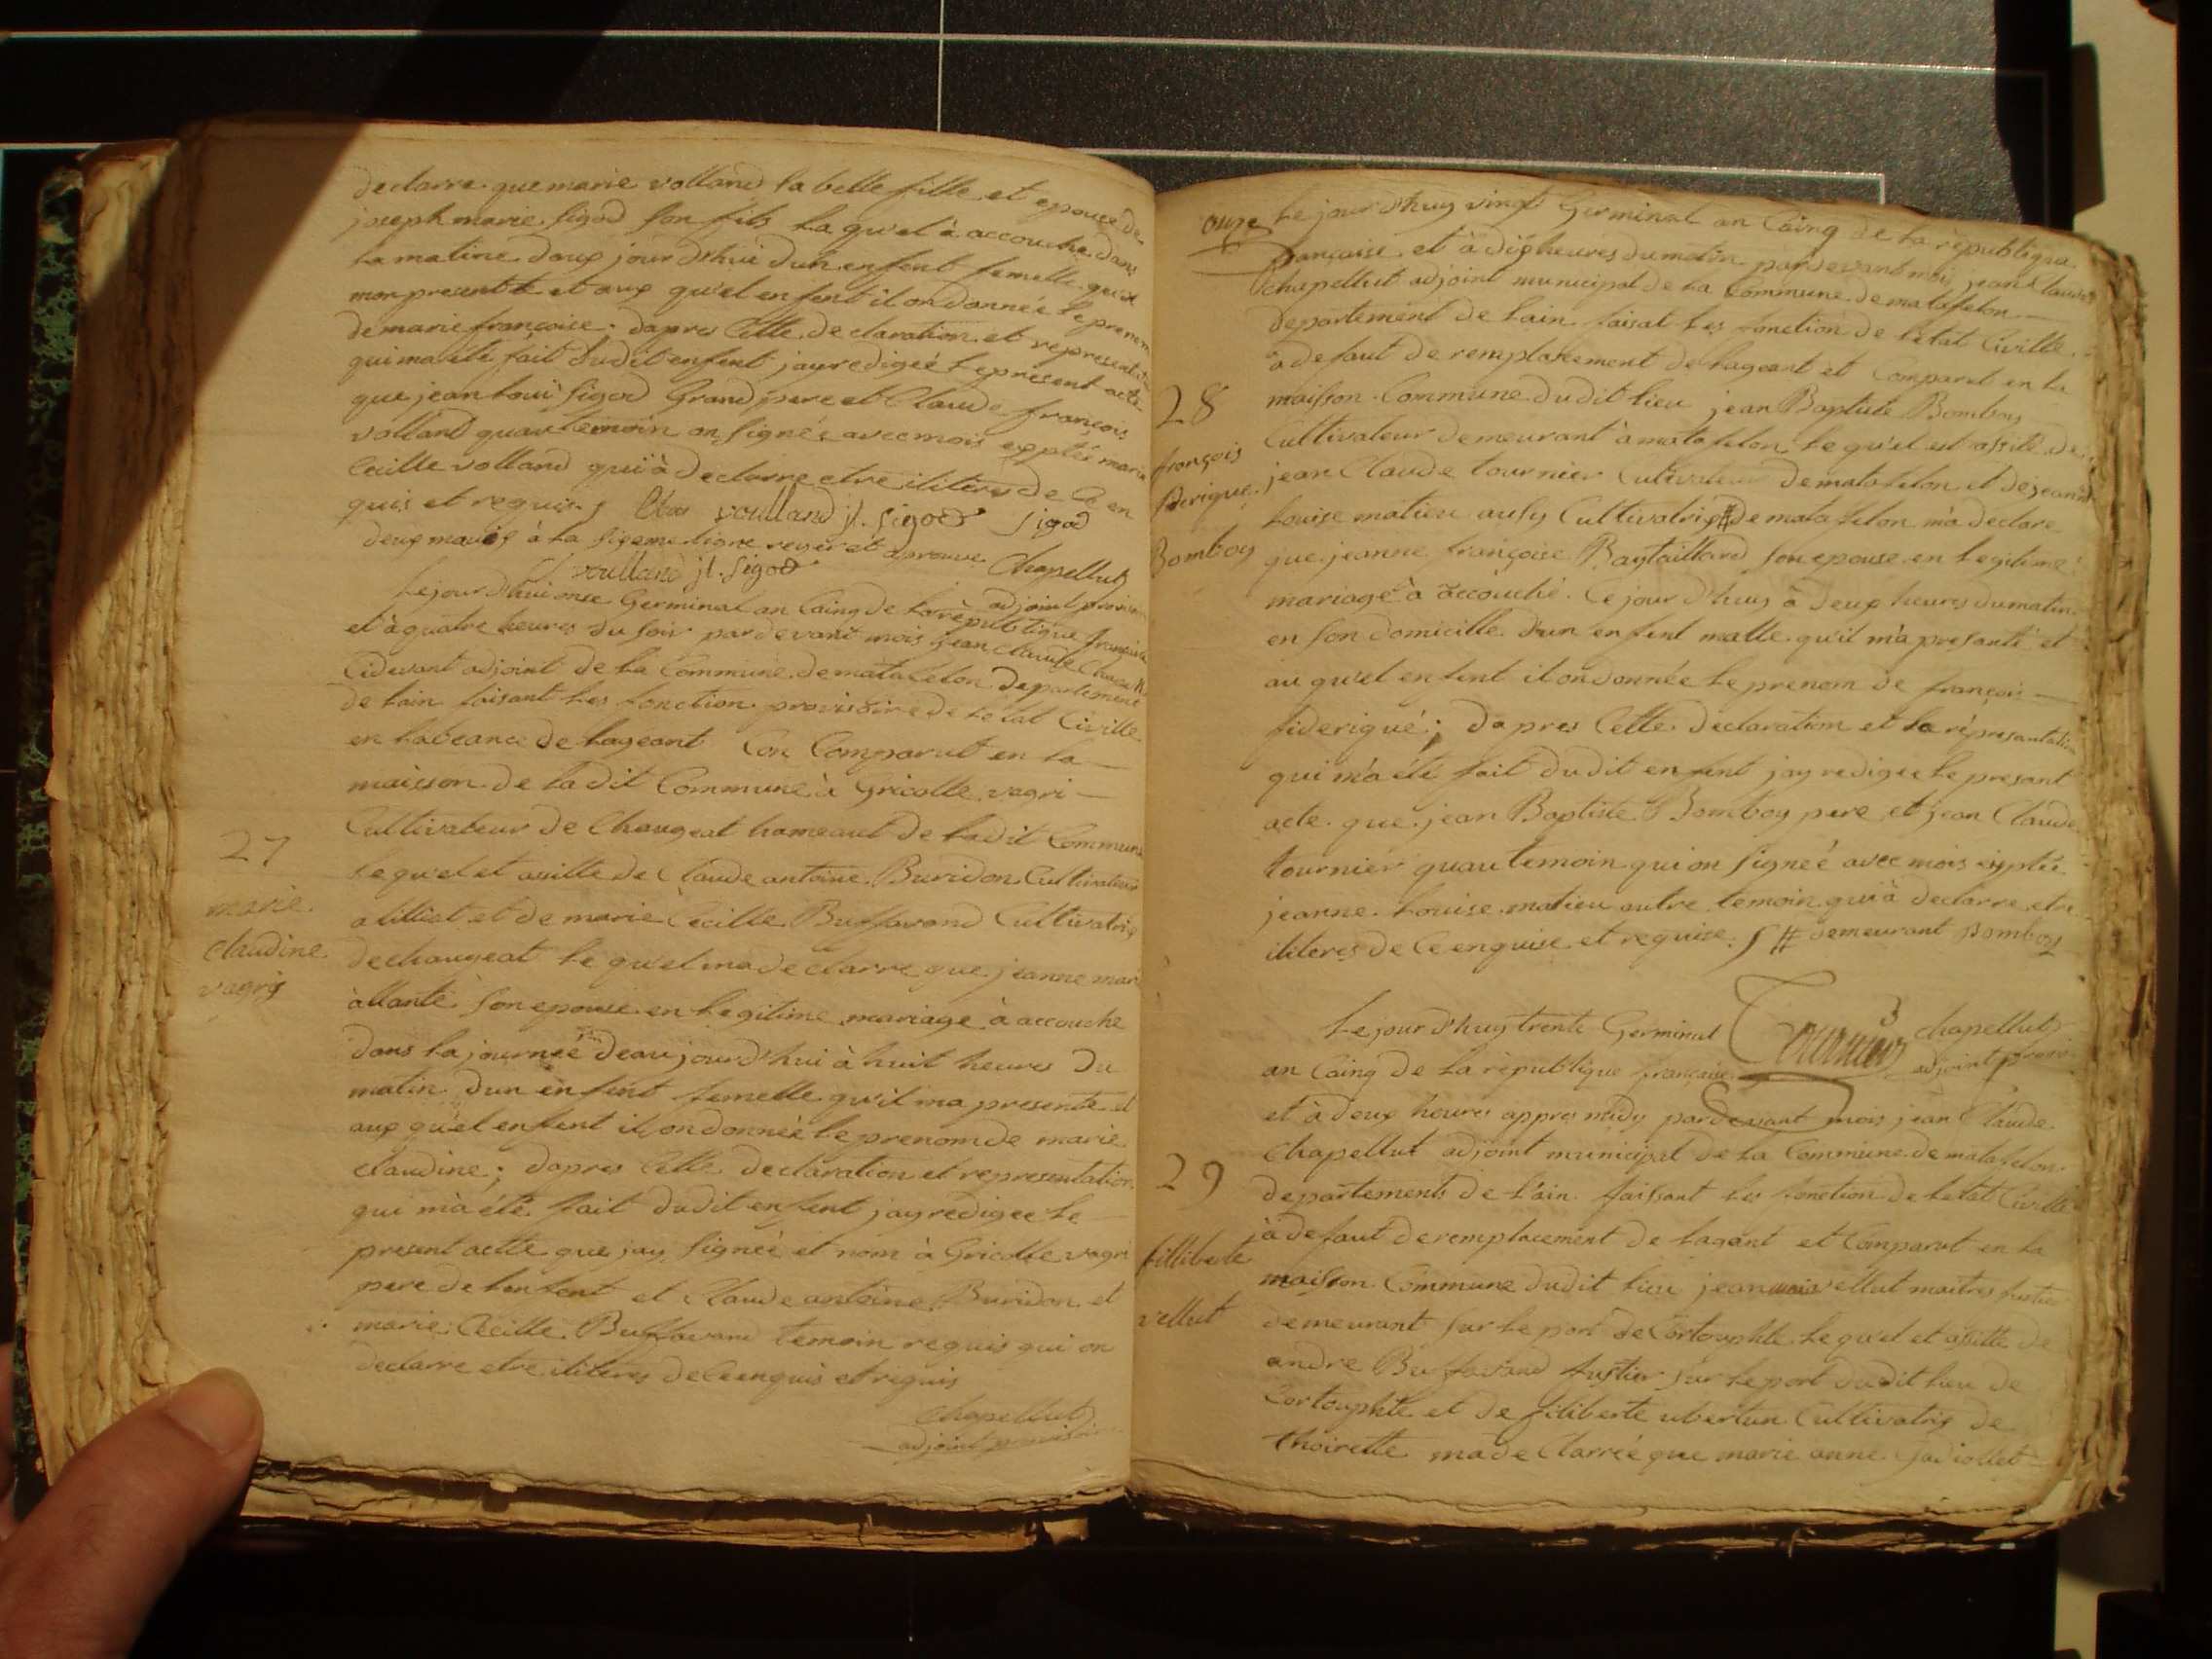 declarre que marie volland sa belle fille et epouse de
joseph marie sigod son fils la qu'el à accouche dans
la matine daux jour d'hui dun enfent femelle qu'il
mon presentte et aux qu'el enfent il on donnée le prenom
de marie françoise. dapres cette declaration et representation
qui ma été fait dudit enfent jay redigeé le present acte
que jean loui sigod Grand pere et Claude françois
volland quau temoin on signée avec mois exptée marie
Cecille volland qui à declarre etre iliteres de Ce en
quis et requis. voulland jl. sigod sigod
deux mau à la sixeme ligne reyer et aprouve Chapellut
voulland jl. sigod adjoint provisoire
Le jour d'hui onse Germinal an Cainq de la république française
et à quatre heures du soir par devant mois jean Claude Chapellut
Cidevant adjoint de la Commune de matafelon departement
de lain faisant les fonction provisoire de letat Civille
en labeance de lageant Con Comparut en la
maisson de ladit Commune à Gricolle vagri
Cultivateur de Chaugeat hameaut de ladit Commune
27
le qu'el et assitte de Claude antoine Buridon Cultivateur
marie
a siliat et de marie Cecille Buffavand Cultivatrix
claudine
de chaugeat le qu'el ma declarre que jeanne mar
vagris
àllante son epouse en legitime mariage à accouche
dans la journeé deau jour d'hui à huit heures du
matin dun enfent femelle qu'il ma presente et
aux qu'el enfent il on donnée le prenom de marie
claudine; dapres cette declaration et representation
qui m'à été fait dudit enfent jay redigee le
present actte que jay signeé et nom à Gricolle vagri
pere de lenfent et Claude antoine Buridon et
marie Cecille Buffavand temoin requis qui on
declarre etre iliteres de Ce enquis et riquis
Chapellut
adjoint provisoire
onze Le jour d'huy vingt Germinal an Cainq de la republique
française et à dix heures du matin pardevant mois jean Claude
chapellut adjoint municipal de la Commune de matafelon
departement de lain faisat les fonction de létat Civille
à defaut de remplacement de lageant et Comparut en la
28
maisson Commune dudit lieu jean Baptiste Bomboy
Cultivateur demeurant à matafelon le qu'el est assité de
françois
jean Claude tournier Cutivateur de matafelon et de jeanne
fiderique
Louise matieu ausy Cultivatrix # de matafelon m'a declare
Bomboy
que jeanne françoise Baytaillard son epouse en legitime
mariage à accouché Ce jour d'huy à deux heures du matin
en son domicille d'un enfent malle qu'il m'a presanté et
au qu'el enfent il on donnée le prenom de françois
fideriqué; dapres Cette declaration et la répresantation
qui m'a été fait dudit enfent jay redigee le presant
acte que jean Baptiste Bomboy pere et jean Claude
tournier quau temoin qui on signeé avec mois exptée
jeanne Louise matieu autre temoin qui à declarre etre
iliteres de Ce enquise et requise. # demeurant Bomboy
Le jour d'huy trente Germinal Tournier chapellut
an Cainq de la republique française adjoint provi
et à deux heures appres midy pardevant mois jean Claude
Chapellut adjoint municipal de la Commune de matafelon
29
departements de l'ain faissant les fonction de letat Civille
à defaut de remplacement de lagant et Comparut en la
filliberte
maisson Commune dudit lieu jean vellut maitres fustier
vellut
demeurant sur le port de Cortouphle le qu'el et assitte de
andre Buffavand fustier sur le port dudit lieu de
Cortouphle et de filiberte ubertun Cultivatrix de
thoirette ma declarreé que marie anne jadiollet